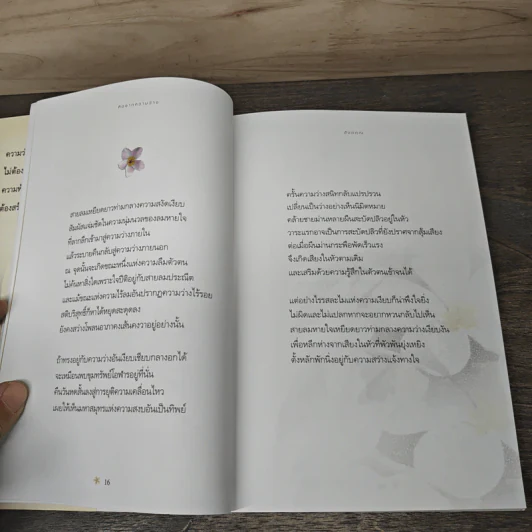 ความว่
ไม่ต้อง
ความห
ต้องสร้
สายลมเหยียดยาวท่ามกลางความสงัดเงียบ
สัมผัสแผ่วชิดในความนุ่มนวลของลมหายใจ
ที่ลากลึกเข้ามาสู่ความว่างภายใน
แล้วระบายคืนกลับสู่ความว่างภายนอก
ณ จุดนั้นจะเกิดขณะหนึ่งแห่งความลืมตัวตน
ไม่ค้นหาสิ่งใดเพราะใจปีติอยู่กับสายลมประณีต
และแม้ขณะแห่งไร้ลมอันปรากฏความว่างไร้รอย
สติบริสุทธิ์ก็หาได้หยุดสะดุดลง
ยังคงสว่างโพลนอาภาคงเส้นคงวาอยู่อย่างนั้น
ถ้าทรงอยู่กับความว่างอันเงียบเชียบกลางอกได้
จะเหมือนพบขุมทรัพย์โอฬารอยู่ที่นั่น
คืนวันหดสั้นลงสู่การยุติความเคลื่อนไหว
เผยให้เห็นมหาสมุทรแห่งความสงบอันเป็นทิพย์
16
ดังตฤณ
ครั้นความว่างสนิทกลับแปรปรวน
เปลี่ยนเป็นว่างอย่างเห็นนิมิตหมาย
คล้ายชายม่านหลายผืนสะบัดปลิวอยู่ในหัว
วาระแรกอาจเป็นการสะบัดปลิวที่ยังปราศจากสุ้มเสียง
ต่อเมื่อผืนม่านกระพือพัดเร็วแรง
จึงเกิดเสียงในหัวตามเติม
และเสริมด้วยความรู้สึกในตัวตนเข้าจนได้
แต่อย่างไรรสละไมแห่งความเงียบก็น่าพึงใจยิ่ง
ไม่ผิดและไม่แปลกหากจะอยากหวนกลับไปหา
สายลมหายใจเหยียดยาวท่ามกลางความว่างเงียบงัน
เพื่อหลีกห่างจากเสียงในหัวที่พัวพันยุ่งเหยิง
ตั้งหลักพักนิ่งอยู่กับความสว่างแจ้งทางใจ